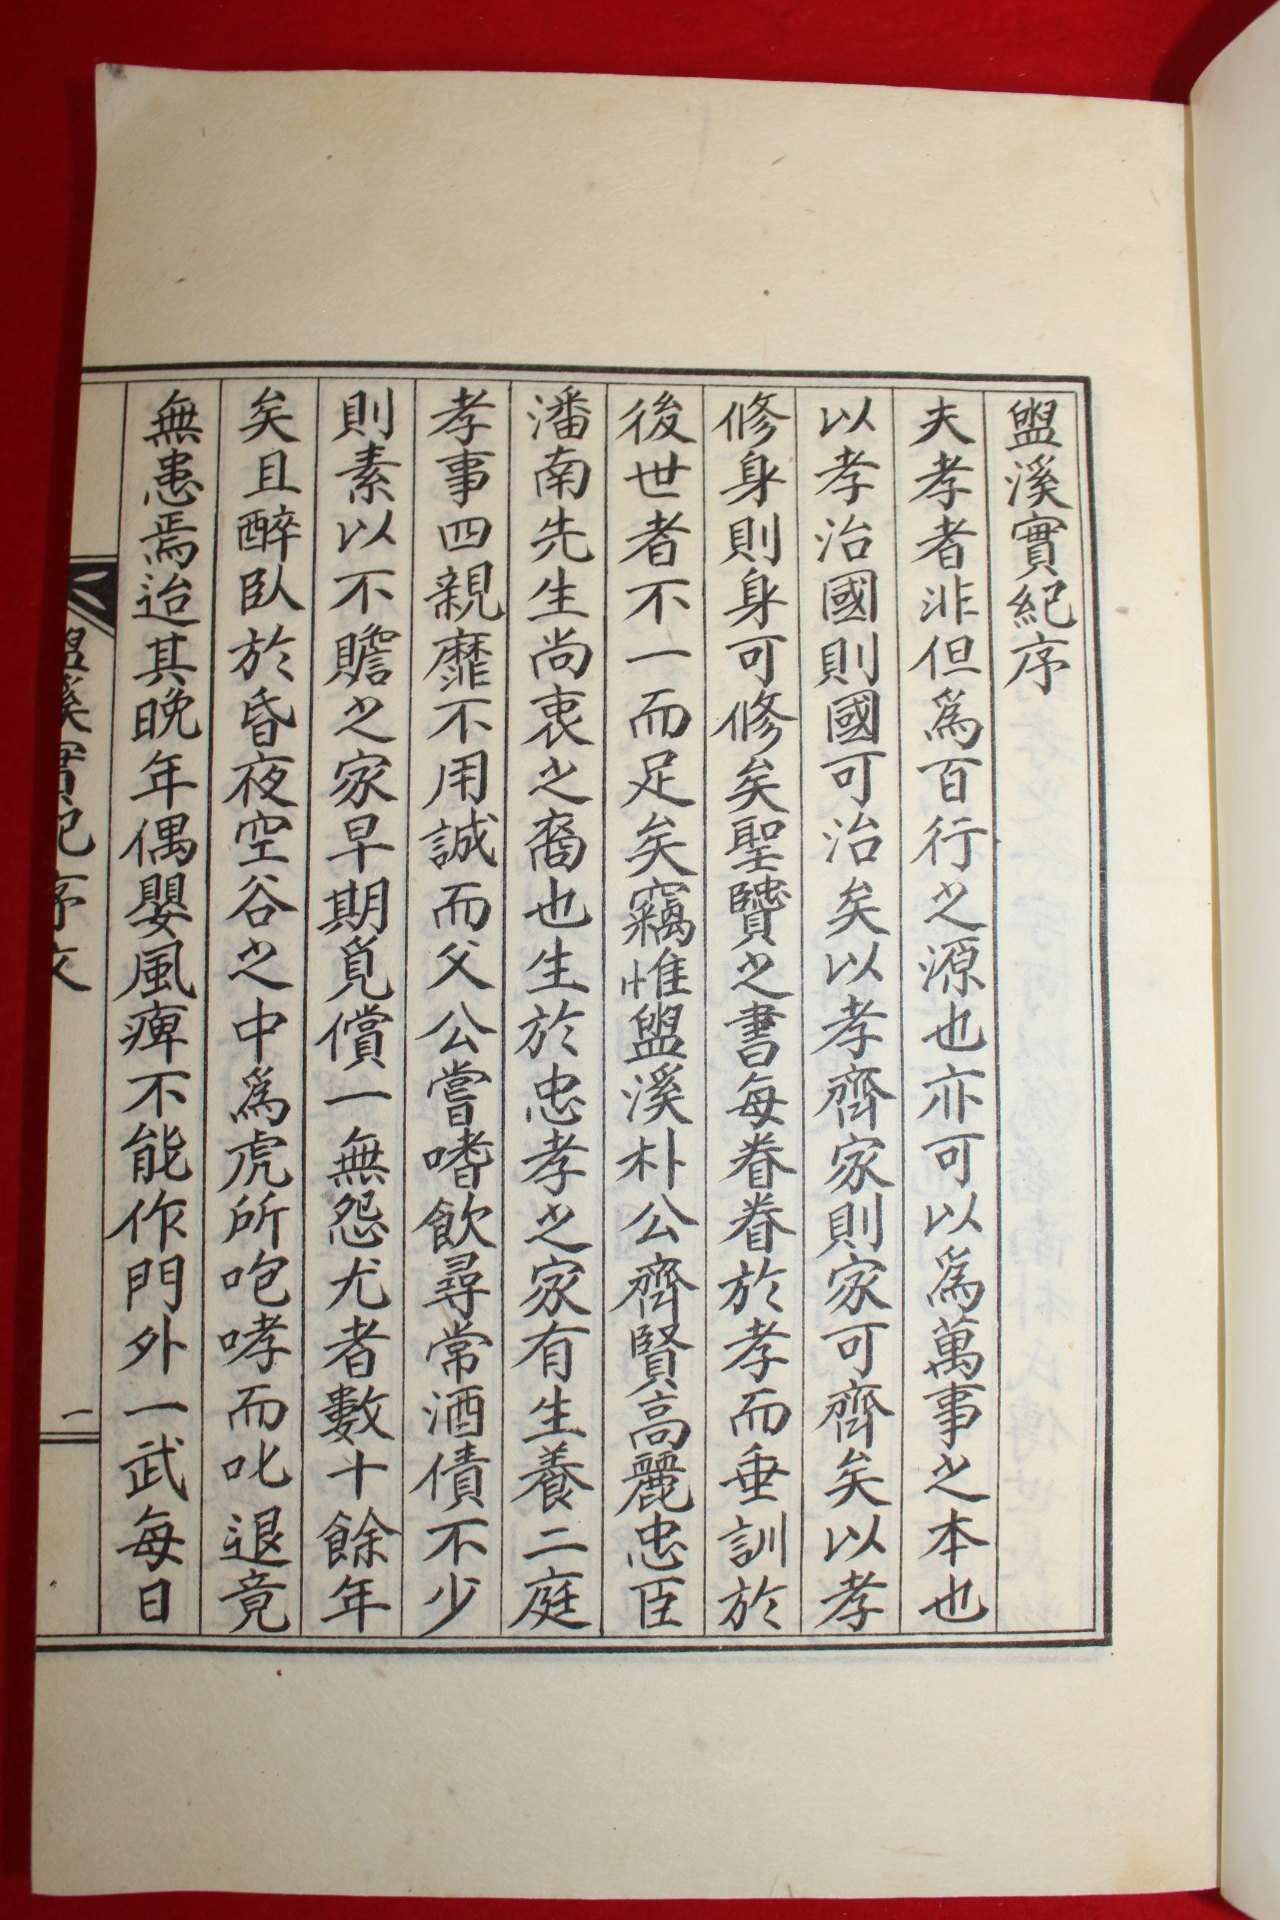 盥溪實紀序
夫孝者非但爲百行之源也亦可以爲萬事之本也
以孝治國則國可治矣以孝齊家則家可齊矣以孝
修身則身可修矣聖贒之書每眷眷於孝而垂訓於
後世者不一而足矣竊惟盥溪朴公齊賢高麗忠臣
潘南先生尚衷之裔也生於忠孝之家有生養二庭
孝事四親靡不用誠而父公嘗嗜飮尋常酒債不少
則素以不贍之家早期覓償一無怨尤者數十餘年
矣且醉臥於昏夜空谷之中爲虎所咆哮而叱退竟
無恙焉迨其晚年偶嬰風痺不能作門外一武每日
盥溪實紀 序文
一